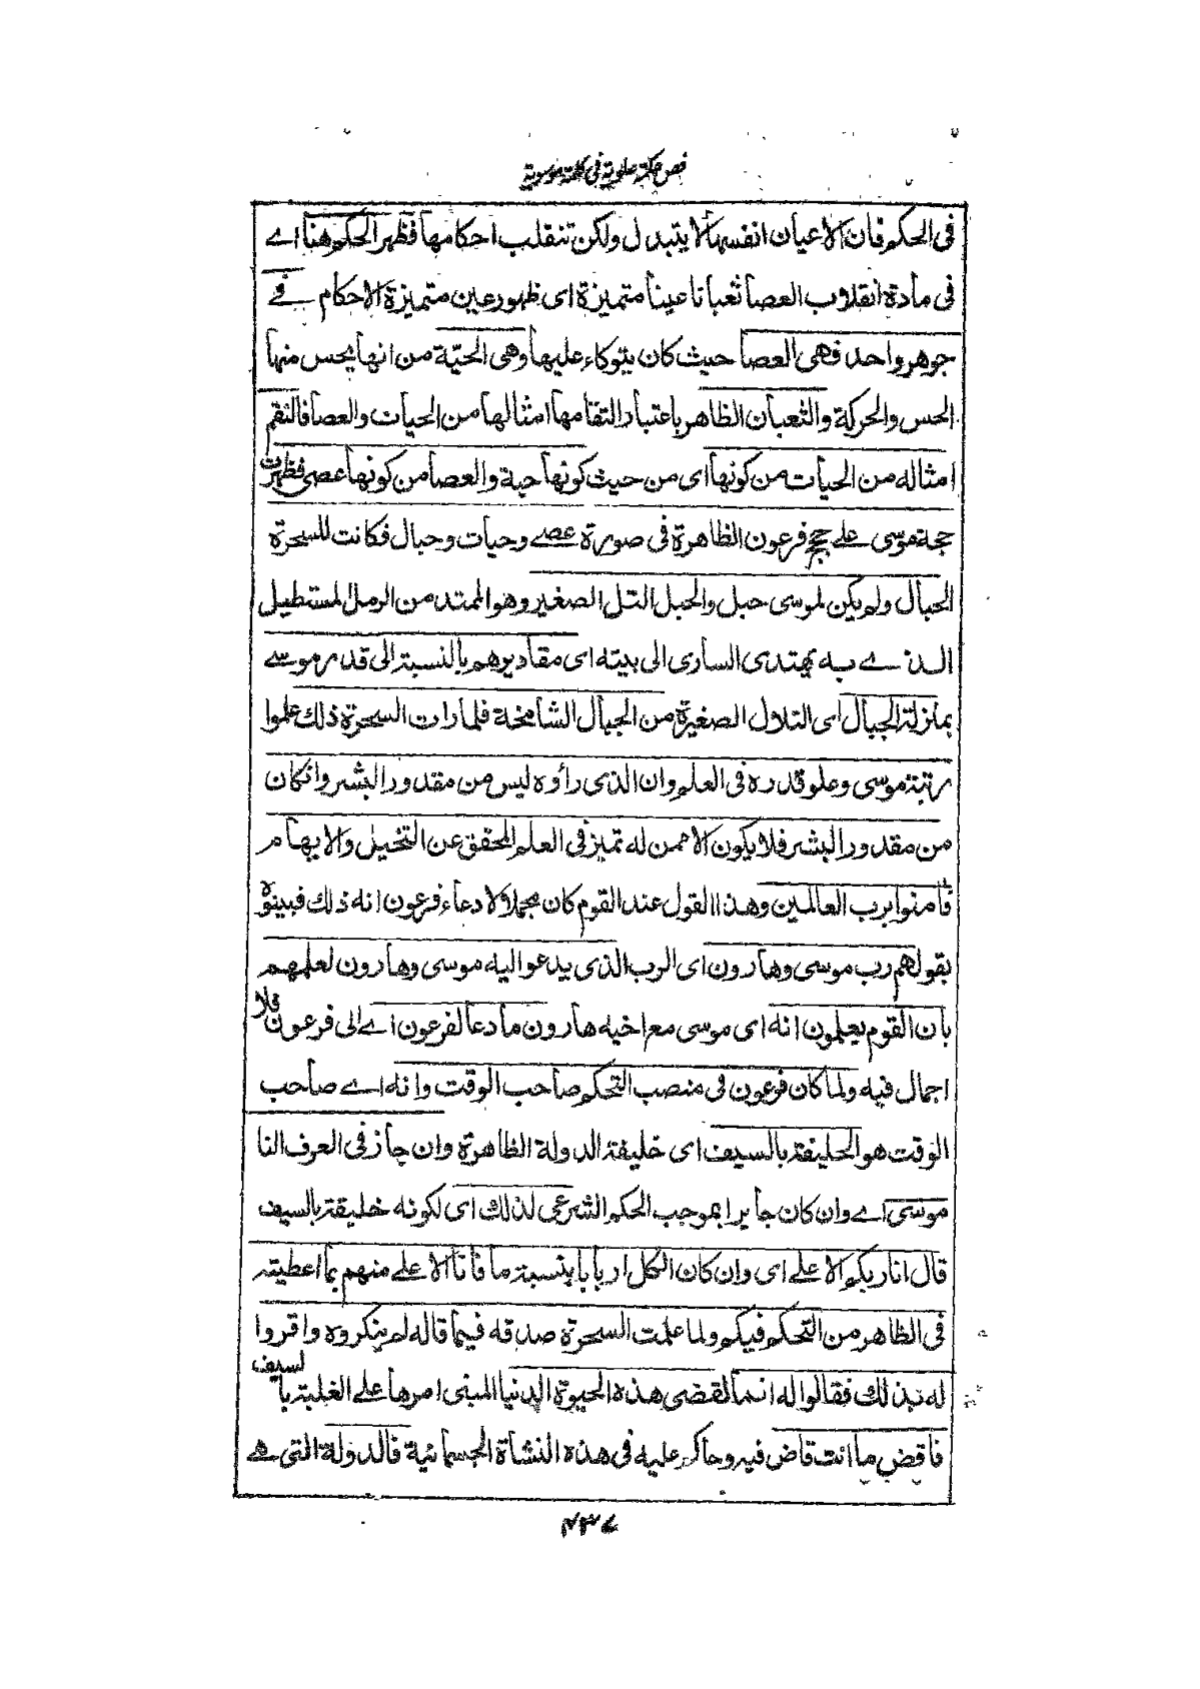 فص حكمة علوية فى كلمة موسوية
فى الحكم فان الاعيان انفسها لا يتبدل ولكن تنقلب احكامها فظهر الحكم هنا اے
فى مادة انقلاب العصا ثعبانا عينا متميزة اى ظهور عين متميزة الاحكام فے
جوهر واحد فهى العصا حيث كان يتوكاء عليها وهى الحيّة من انها يحس منها
الحس والحركة والثعبان الظاهر باعتبار التقامها امثالها من الحيات والعصا فالتقم
امثاله من الحيات من كونها اى من حيث كونها حية والعصا من كونها عصى فظهرت
حجة موسى علے حجج فرعون الظاهرة فى صورة عصے وحيات وحبال فكانت للسحرة
الحبال ولم يكن لموسى حبل والحبل التل الصغير وهو الممتد من الرمل المستطيل
الذے به يهتدى السارى الى بيته اى مقاديرهم بالنسبة الى قدر موسے
بمنزلة الحبال اى التلال الصغيرة من الجبال الشامخة فلما رات السحرة ذلك علموا
رتبة موسى وعلو قدره فى العلم وان الذى رأوه ليس من مقدور البشر وان كان
من مقدور البشر فلا يكون الا ممن له تميز فى العلم المحقق عن التخيل والايهام
فآمنوا برب العالمين وهذا القول عند القوم كان مجملا لادعاء فرعون انه ذلك فبينوه
بقولهم رب موسى وهارون اى الرب الذى يدعو اليه موسى وهارون لعلمهم
بان القوم يعلمون انه اى موسى مع اخيه هارون ما دعا لفرعون اے الى فرعون فلا
اجمال فيه ولما كان فرعون فى منصب التحكم صاحب الوقت وانه اے صاحب
الوقت هو الخليفة بالسيف اى خليفة الدولة الظاهرة وان جاز فى العرف النا
موسى اے وان كان جايرا بموجب الحكم الشرعى لذلك اى لكونه خليفة بالسيف
قال انا ربكم الاعلے اى وان كان الكل اربابا بنسبة ما فأنا الاعلے منهم بما اعطيته
فى الظاهر من التحكم فيكم ولما علمت السحرة صدقه فيما قاله لم ينكروه واقروا
له بذلك فقالوا له انما تقضى هذه الحيوة الدنيا المبنى امرها علے الغلبة بالسيف
فاقض ما انت قاض فيه وحاكم عليه فى هذه النشأة الجسمانية فالدولة التى هے
٤٣٧